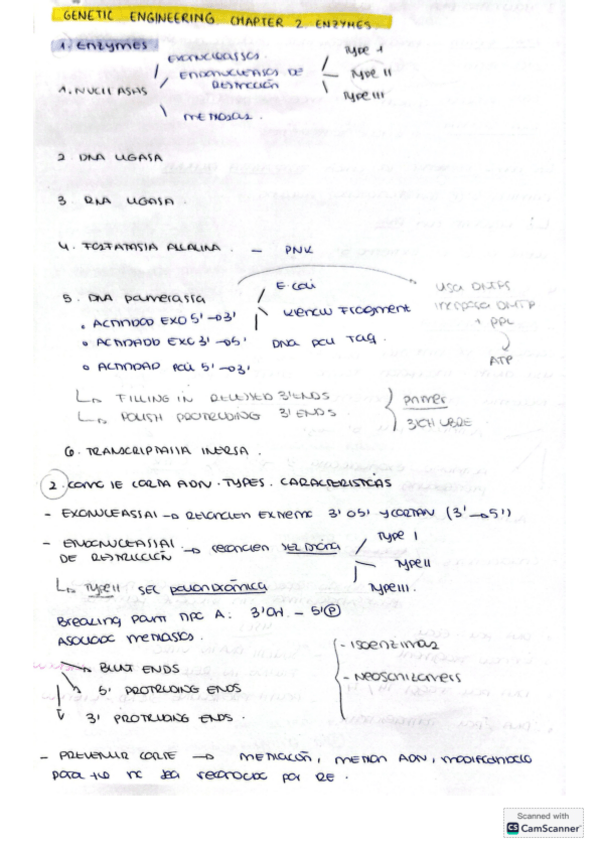 GENETIC ENGINEERING CHAPTER 2. ENZYMES.
1. Enzymes
EXONUCLEASAS. Type 1
1. NUCLEASAS ENDONUCLEASAS DE RESTRICCIÓN Type II
Type III
METILASAS.
2. DNA LIGASA
3. RNA LIGASA.
4. FOSFATASA ALCALINA. — PNK
5. DNA polimerasa E. coli Usa DNTPS
• ACTIVIDAD EXO 5'→3' Klenow Fragment DNTP
+ PPi
• ACTIVIDAD EXO 3'→5' DNA pol TAQ.
ATP
• ACTIVIDAD POL 5'→3'
FILLING IN RECESSED 3'ENDS primer
POLISH PROTRUDING 3'ENDS 3'OH LIBRE
6. TRANSCRIPTASA INVERSA.
2. COMO SE CORTA ADN. TYPES. CARACTERISTICAS
- EXONUCLEASAS → extremo 3' o 5' y cortan (3'→5')
- ENDONUCLEASAS DE RESTRICCIÓN → Type I
Type II
TYPE II SEC palindrómica Type III.
Breaking point 3'OH - 5'P
metilasas.
- Isoenzimas
BLUNT ENDS
- Neoschizomers
5' PROTRUDING ENDS
3' PROTRUDING ENDS.
- PREVENIR CORTE → metilación, ADN, modificando
para que no sea reconocido por RE.
Scanned with
CS CamScanner